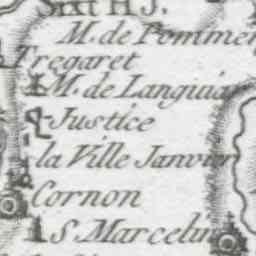 Sixt H S.
M. de Pommer
Tregaret
M. de Languia
Justice
la Ville Janvier
Cornon
S. Marcelin